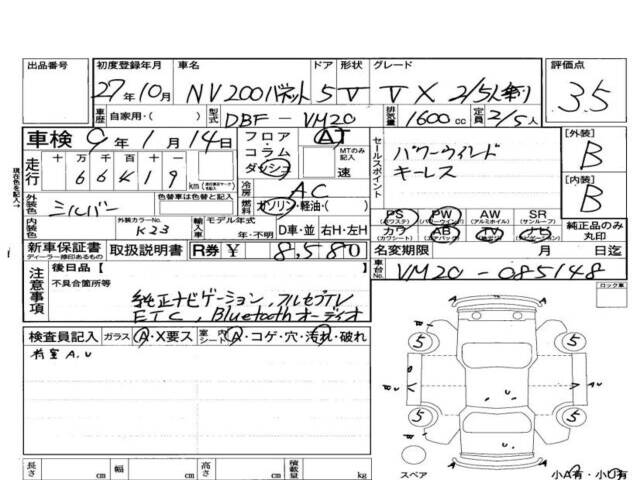 出品番号 初度登録年月 車名 ドア 形状 グレード 評価点
27年10月 NV200バネット 5 V V X 2/5人乗り 3.5
車歴 自家用・( ) 型式 DBF - VM20 排気量 1600cc 定員 2/5人
車検 9年1月14日 フロア・コラム・ダッシュ AT MTのみ記入 速 セールスポイント パワーウインド キーレス 【外装】 B
走行 十万千百十一 66419 km
【内装】 B
現在色を記入→ 外装色 シルバー 色替車は色替と記入 冷房 AC
燃料 ガソリン・軽油・( )
PS (パワステ) PW (パワーウィンド) AW (アルミホイル) SR (サンルーフ)
内装色 外装カラーNo. K23 輸入車 モデル年式 年・不明 D車・並 右H・左H カワ (カワシート) AB (エアバック) TV ナビ 純正品のみ丸印
新車保証書 ディーラー捺印あるもの 取扱説明書 R券 ¥ 8,580 名変期限 月 日迄
注意事項 後日品【 】 車台No. VM20-085148
不具合箇所等 ロック車
純正ナビゲーション, フルセグTV
ETC, Bluetoothオーディオ
検査員記入 ガラス A・X要ス 室内シート A・コゲ・穴・汚れ・破れ
荷室 A, U
5 5
A B U A
U
5 5
長さ cm 幅 cm 高さ cm 積載量 kg スペア 小A有・小U有